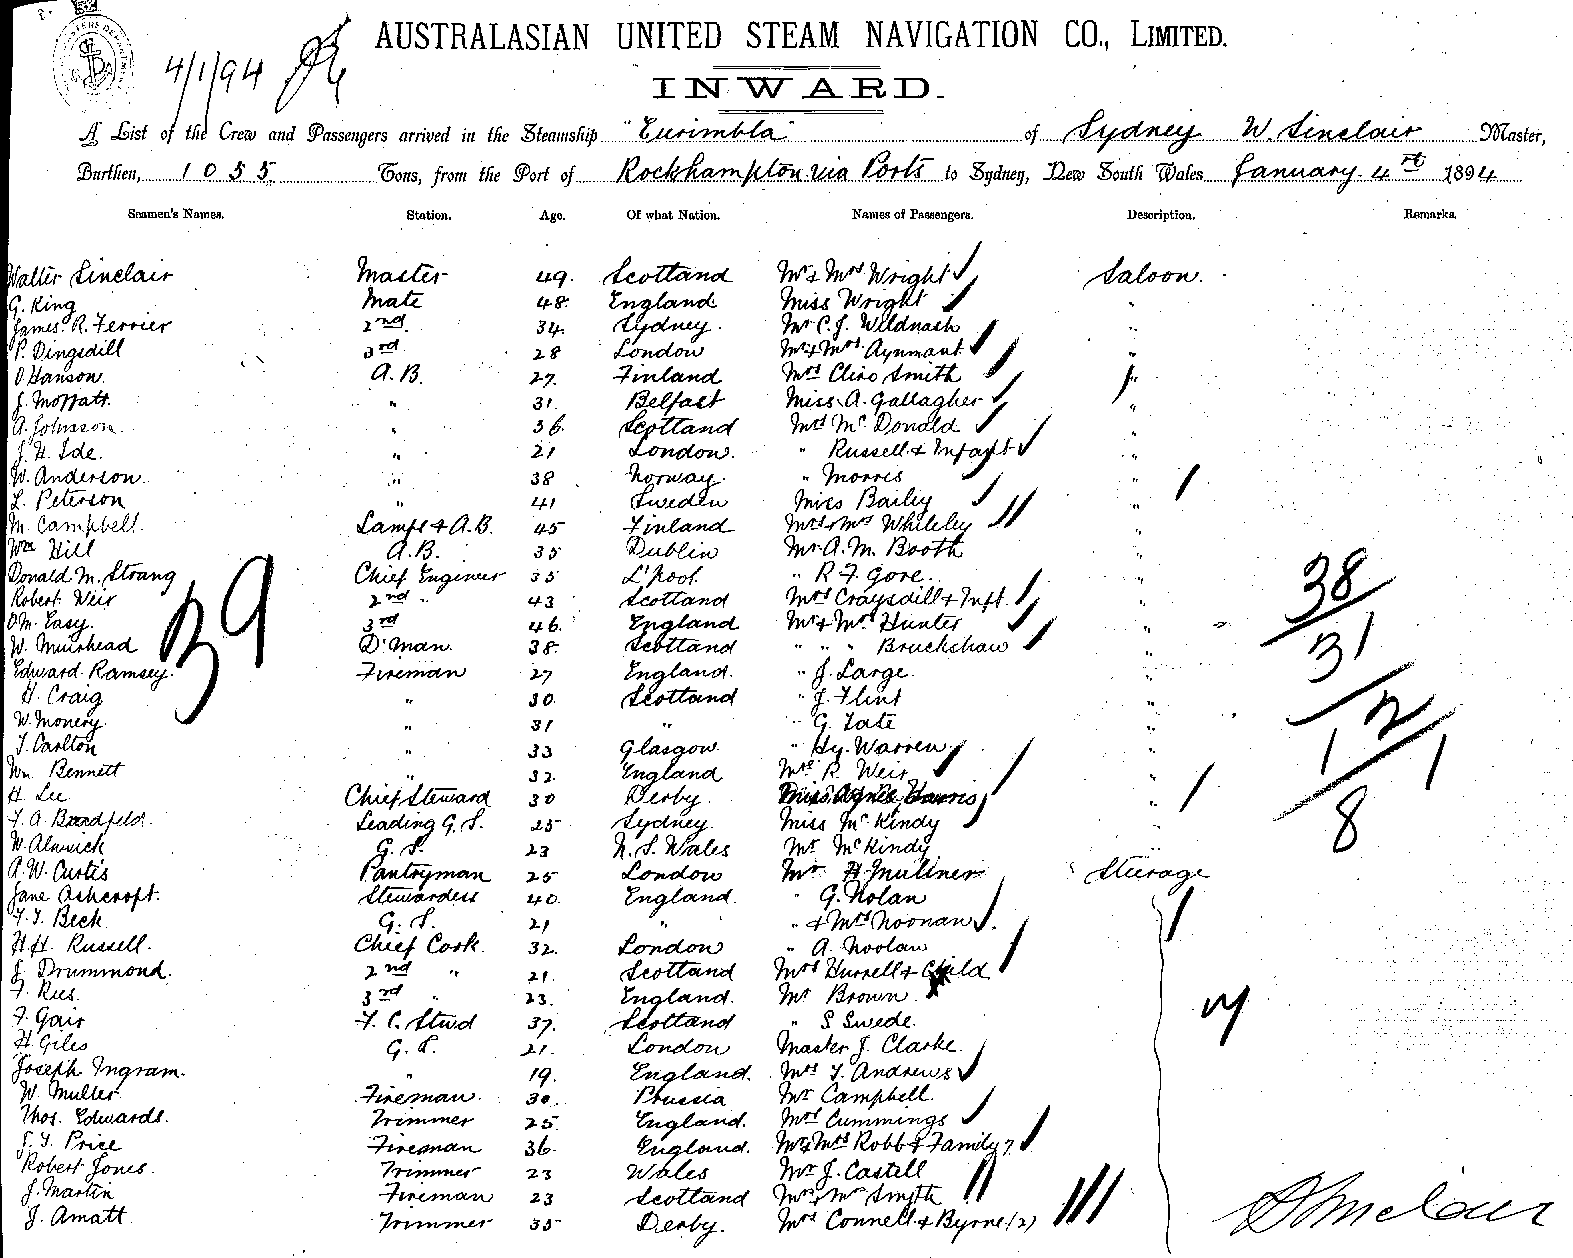 4/1/94
AUSTRALASIAN UNITED STEAM NAVIGATION CO., LIMITED.
INWARD.
A List of the Crew and Passengers arrived in the Steamship "Eurimbla" of Sydney W. Sinclair Master,
Burthen, 1055 Tons, from the Port of Rockhampton via Ports to Sydney, New South Wales January 4th 1894
Seamen's Names. Station. Age. Of what Nation. Names of Passengers. Description. Remarks.
Walter Sinclair Master 49. Scotland Mr & Mrs Wright Saloon.
G. King Mate 48. England Miss Wright "
James. R. Ferrier 2nd 34. Sydney. Mr C. J. Wildnash "
P. Dingsdill 3rd 28 London Mr & Mrs Aynmant "
O Hanson. A.B. 27. Finland Mrs Clive Smith "
J. Moffatt. " 31. Belfast Miss A. Gallagher "
A. Johnson. " 36. Scotland Mrs Mc Donald "
J. H. Ide. " 21 London. " Russell & Infant "
W. Anderson. " 38 Norway. " Morris "
L. Peterson " 41 Sweden Miss Bailey "
M. Campbell. Lamps & A.B. 45 Finland Mr & Mrs Whiteley "
Wm Hill A.B. 35 Dublin Mr A. M. Booth "
Donald M. Strang Chief Engineer 35 L'pool. " R. F. Gore. "
Robert Weir 2nd " 43 Scotland Mrs Craysdill & Inft. "
O M. Easy. 3rd 46. England Mr & Mrs Hunter "
W. Muirhead D'Man. 38. Scotland " " " Bruckshaw "
Edward Ramsey. Fireman 27 England. " J. Large. "
H. Craig " 30. Scotland " J. Flint "
W. Monery. " 31 " " G. Tate "
T. Carlton " 33 Glasgow. " Hy. Warren "
Wm. Bennett " 32. England Mrs R. Weir "
H. Lee Chief Steward 30 Derby. Miss Agnes Harris "
F. A. Bradfeld. Leading G. S. 25 Sydney. Miss Mc Kindy
W. Alnwick G. S. 23 N. S. Wales Mr McKindy "
A. W. Curtis Pantryman 25 London Mr H. Mullner Steerage
Jane Ashcroft. Stewardess 40. England. " G. Nolan
F. T. Beck G. S. 21 " " & Mrs Noonan
H H. Russell. Chief Cook. 32. London " A. Noolan
J. Drummond. 2nd " 21. Scotland Mrs Hurrell & Child
F. Rees. 3rd " 23. England. Mr Brown.
F. Gair F. C. Stwd 37. Scotland " S Swede.
H Giles G. S. 21. London Master J. Clarke.
Joseph Ingram. " 19. England. Mrs T. Andrews
W. Muller Fireman. 30. Prussia Mr Campbell.
Thos. Edwards. Trimmer 25 England. Mrs Cummings
S. T. Price Fireman 36. England. Mr & Mrs Robb & Family 7.
Robert Jones. Trimmer 23 Wales Mr J. Castell
J. Martin Fireman 23 Scotland Mr & Mrs Smyth
J. Amatt. Trimmer 35 Derby. Mrs Connell & Byrne (2)
39
38
31
1
8